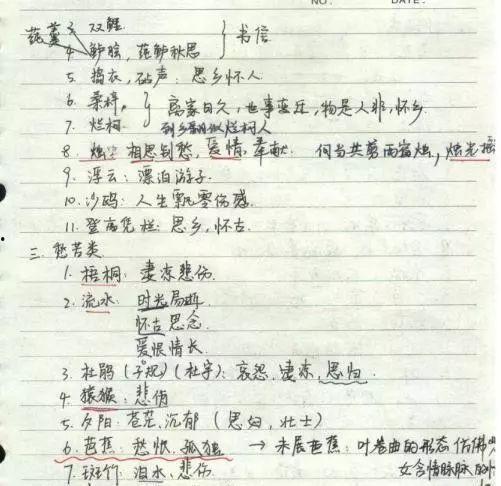 NO. DATE.
莼羹 3. 双鲤
4. 鲈脍, 莼鲈秋思 } 书信
5. 捣衣, 砧声: 思乡怀人
6. 桑梓,
} 离家日久, 世事变迁, 物是人非, 怀乡
7. 烂柯 到乡翻似烂柯人
8. 烛: 相思别愁, 爱情, 奉献. 何当共剪西窗烛, 烛光
9. 浮云: 漂泊游子.
10. 沙鸥: 人生飘零伤感.
11. 登高凭栏: 思乡, 怀古.
三. 愁苦类
1. 梧桐: 凄凉悲伤.
2. 流水: 时光易逝
怀古思念.
爱恨情长.
3. 杜鹃 (子规) (杜宇): 哀怨, 凄凉, 思归.
4. 猿猴: 悲伤
5. 夕阳: 苍茫, 沉郁 (思妇, 壮士)
6. 芭蕉: 愁恨, 孤独 → 未展芭蕉: 叶卷曲的形态仿佛
7. 斑竹: 泪水, 悲伤. 女含情脉脉的